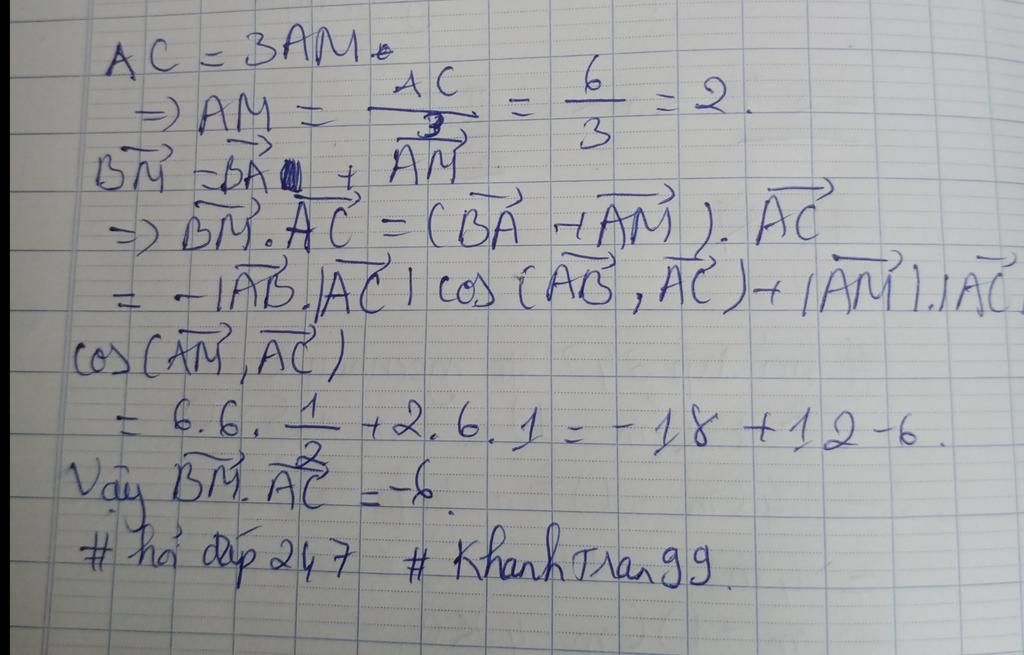 AC = 3AM.
=> AM = AC/3 = 6/3 = 2.
\overrightarrow{BM} = \overrightarrow{BA} + \overrightarrow{AM}
=> \overrightarrow{BM}.\overrightarrow{AC} = (\overrightarrow{BA} + \overrightarrow{AM}).\overrightarrow{AC}
= -|\overrightarrow{AB}.|\overrightarrow{AC}| cos(\overrightarrow{AB}, \overrightarrow{AC}) + |\overrightarrow{AM}|.|\overrightarrow{AC}|
cos(\overrightarrow{AM}, \overrightarrow{AC})
= 6.6.1/2 + 2.6.1 = -18 + 12 - 6.
Vậy \overrightarrow{BM}.\overrightarrow{AC} = -6.
# hỏi đáp 247 # KhanhTran99.